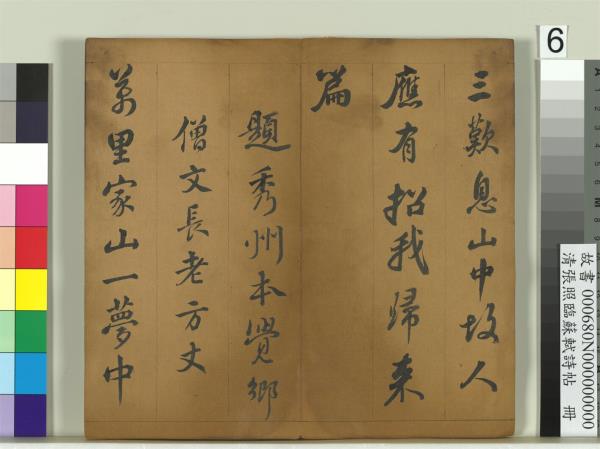 三歎息山中故人
應有招我歸来
篇
題秀州本覺鄉
僧文長老方丈
萬里家山一夢中
6
故書 000680N000000000
清張照臨蘇軾詩帖 冊